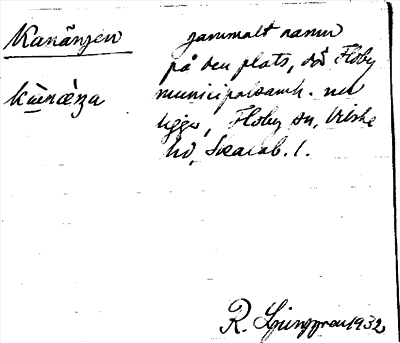 Kanängen
kænæŋa
gammalt namn
på den plats, där Floby
municipalsamh. nu
ligger, Floby sn, Vilske
hd, Skarab. l.
R. Ljunggren 1932